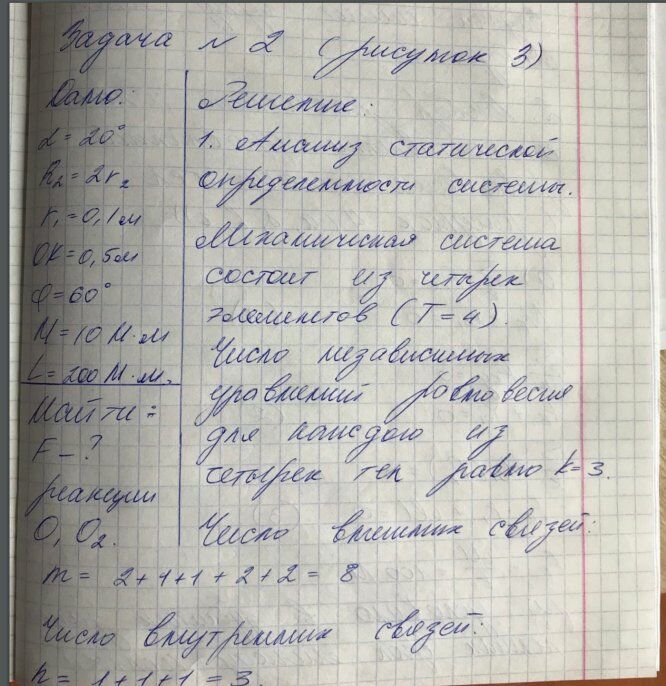 Задача № 2 (рисунок 3)
Дано:
α = 20°
R₂ = 2r₂
r₁ = 0,1 м
OK = 0,5 м
φ = 60°
M = 10 Н·м
L = 200 Н·м.
Найти:
F – ?
реакции
O, O₂.
Решение:
1. Анализ статической
определенности системы.
Механическая система
состоит из четырех
элементов (T = 4).
Число независимых
уравнений равновесия
для каждого из
четырех тел равно k = 3.
Число внешних связей:
m = 2+1+1+2+2 = 8
Число внутренних связей:
n = 1+1+1 = 3.